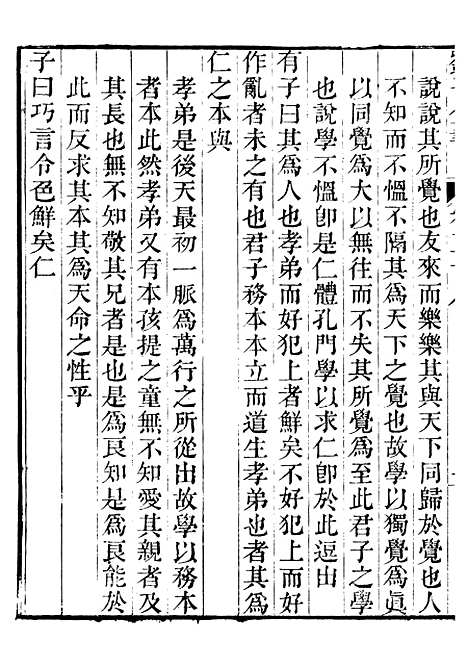 說說其所覺也友來而樂樂其與天下同歸於覺也人
不知而不慍不隔其爲天下之覺也故學以獨覺爲眞
以同覺爲大以無往而不失其所覺爲至此君子之學
也說學不慍卽是仁體孔門學以求仁卽於此逗由
有子曰其爲人也孝弟而好犯上者鮮矣不好犯上而好
作亂者未之有也君子務本本立而道生孝弟也者其爲
仁之本與
孝弟是後天最初一脈爲萬行之所從出故學以務本
者本此然孝弟又有本孩提之童無不知愛其親者及
其長也無不知敬其兄者是也是爲良知是爲良能於
此而反求其本其爲天命之性乎
子曰巧言令色鮮矣仁